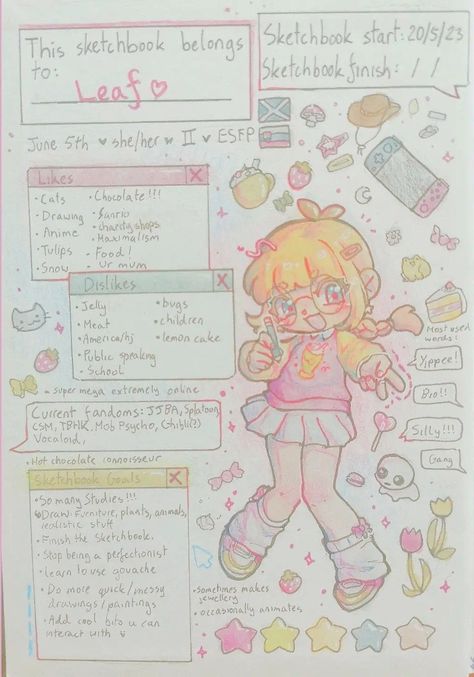 This sketchbook belongs
to:
Leaf
Sketchbook start: 20/5/23
Sketchbook finish: / /
June 5th ♥ she/her ♥ II ♥ ESFP
Likes
• Cats
• Drawing
• Anime
• Tulips
• Snow
• Chocolate!!!
• Sanrio
• charity shops
• Maximalism
• Food!
• ur mum
Dislikes
• Jelly
• Meat
• America/hj
• Public speaking
• School
• bugs
• children
• lemon cake
- super mega extremely online
Current fandoms: JJBA, Splatoon,
CSM, TBHK, Mob Psycho, Ghibli(?)
Vocaloid,
• Hot chocolate connoisseur
Sketchbook Goals
• So many Studies!!!
Draw: Furniture, plants, animals,
realistic stuff
• Finish the Sketchbook.
• Stop being a perfectionist
• Learn to use gouache
• Do more quick/messy
drawings/paintings
• Add cool bits u can
interact with
Most used
words:
Yippee!
Bro!!
Silly!!!
Gang
• sometimes makes
jewellery
• occasionally animates